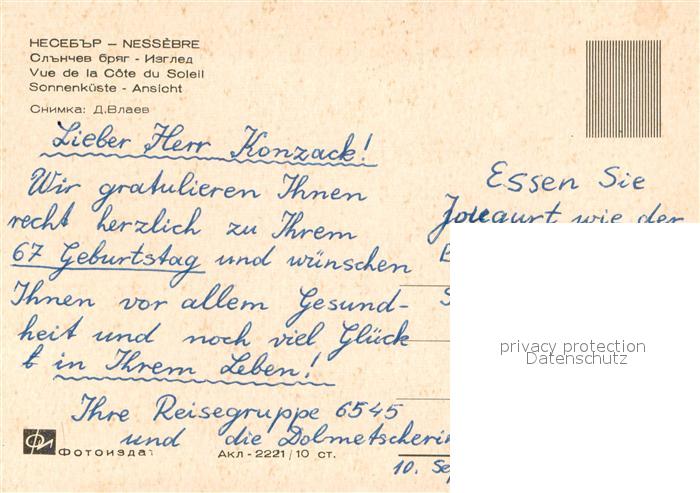 НЕСЕБЪР – NESSÈBRE
Слънчев бряг - Изглед
Vue de la Côte du Soleil
Sonnenküste - Ansicht
Снимка: Д.Влаев
Lieber Herr Konzack!
Wir gratulieren Ihnen
recht herzlich zu Ihrem
67 Geburtstag und wünschen
Ihnen vor allem Gesund-
heit und noch viel Glück
in Ihrem Leben!
Ihre Reisegruppe 6545
und die Dolmetscherin
10. Sep
Essen Sie
wie der
privacy protection
Datenschutz
Фотоиздат
Акл - 2221/10 ст.